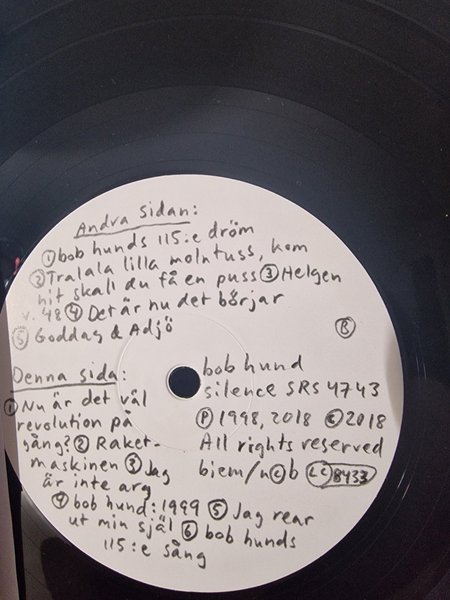 Andra sidan:
① bob hunds 115:e dröm
② Tralala lilla molntuss, kom
hit skall du få en puss ③ Helgen
v. 48 ④ Det är nu det börjar
⑤ Goddag & Adjö
Ⓑ
Denna sida:
① Nu är det väl
revolution på
gång? ② Raket-
maskinen ③ Jag
är inte arg
④ bob hund: 1999 ⑤ Jag rear
ut min själ ⑥ bob hunds
115:e sång
bob hund
silence SRS 4743
Ⓟ 1998, 2018 Ⓒ 2018
All rights reserved
biem/n©b LC 8433